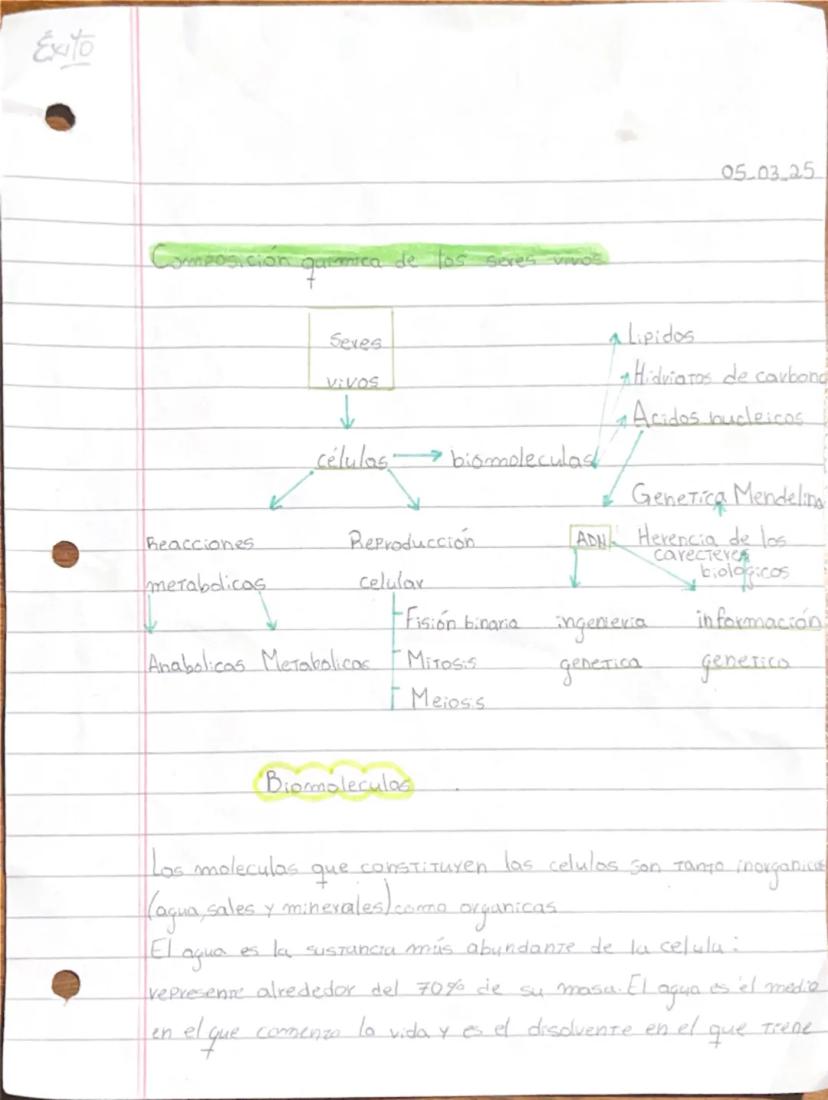 Éxito
05-03-25
Composición quimica de los seres vivos
Seres
vivos
células
biomoleculas
Lipidos
Hidriatos de carbono
Acidos nucleicos
Genetica Mendelina
Reacciones
metabolicas
Anabolicas Metabolicas
Reproducción
celular
Fisión binaria
Mitosis
Meiosis
ADN
Herencia de los
carecteres
biológicos
ingenieria
genetica
información
genetica
Biomoleculas
Las moleculas que constituyen las celulas son tanto inorganicas
(agua, sales y minerales) como organicas
El agua es la sustancia más abundante de la celula:
represente alrededor del 70% de su masa. El agua es el medio
en el que comenzo la vida y es el disolvente en el que tiene